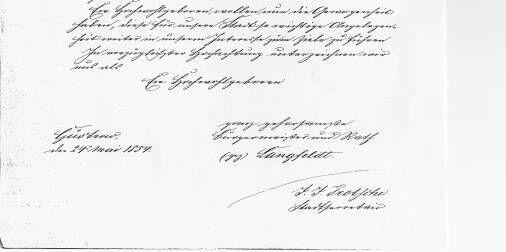 Ew. Hochwohlgeboren wollen nun die Gewogenheit
haben, diese für unsere Stadt so wichtige Angelegen-
heit weiter in unserem Interesse zum Ziele zu führen
In vorzüglichster Hochachtung unterzeichnen wir
uns als
Ew. Hochwohlgeboren
ganz gehorsamste
Güstrow, Bürgermeister und Rath
den 24. Mai 1854. (gz) Langfeldt.
Stadtsecretair